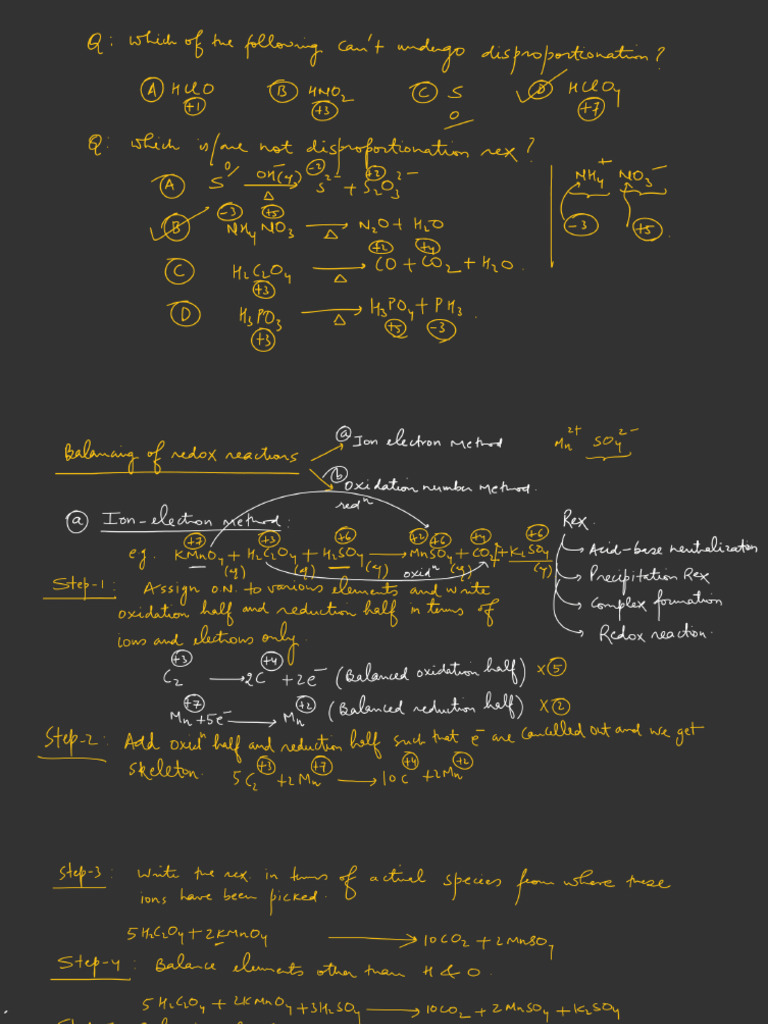 Q: which of the following can't undergo disproportionation?
(A) HClO (B) HNO2 (C) S (D) HClO4
+1 +3 0 +7
Q: which is/are not disproportionation rex?
(A) S OH⁻(y) Δ S²⁻ + S2O3²⁻
0 -2 +2
(B) NH4NO3 → Δ N2O + H2O
-3 +5
(C) H2C2O4 → Δ CO + CO2 + H2O.
+3 +2 +4
(D) H3PO3 → Δ H3PO4 + PH3.
+3 +5 -3
NH4⁺ NO3⁻
-3 +5.
Balancing of redox reactions
(a) Ion electron method
(b) Oxidation number method.
Mn²⁺ SO4²⁻
(a) Ion-electron method:
redⁿ
+7 +3 +6 +2 +6 +4 +6
e.g. KMnO4 + H2C2O4 + H2SO4 → MnSO4 + CO2 + K2SO4
(y) (y) (y) oxidⁿ (y) (y)
Rex.
Acid-base neutralization
Precipitation Rex
Complex formation
Redox reaction.
Step-1: Assign O.N. to various elements and write
oxidation half and reduction half in terms of
ions and electrons only.
+3 +4
C2 → 2C + 2e⁻ (Balanced oxidation half) ×5
+7 +2
Mn + 5e⁻ → Mn (Balanced reduction half) ×2
Step-2: Add oxidⁿ half and reduction half such that e⁻ are cancelled out and we get
skeleton.
+3 +7 +4 +2
5C2 + 2Mn → 10C + 2Mn
Step-3: Write the rex. in terms of actual species from where these
ions have been picked.
5H2C2O4 + 2KMnO4 → 10CO2 + 2MnSO4
Step-4: Balance elements other than H & O.
5H2C2O4 + 2KMnO4 + 3H2SO4 → 10CO2 + 2MnSO4 + K2SO4